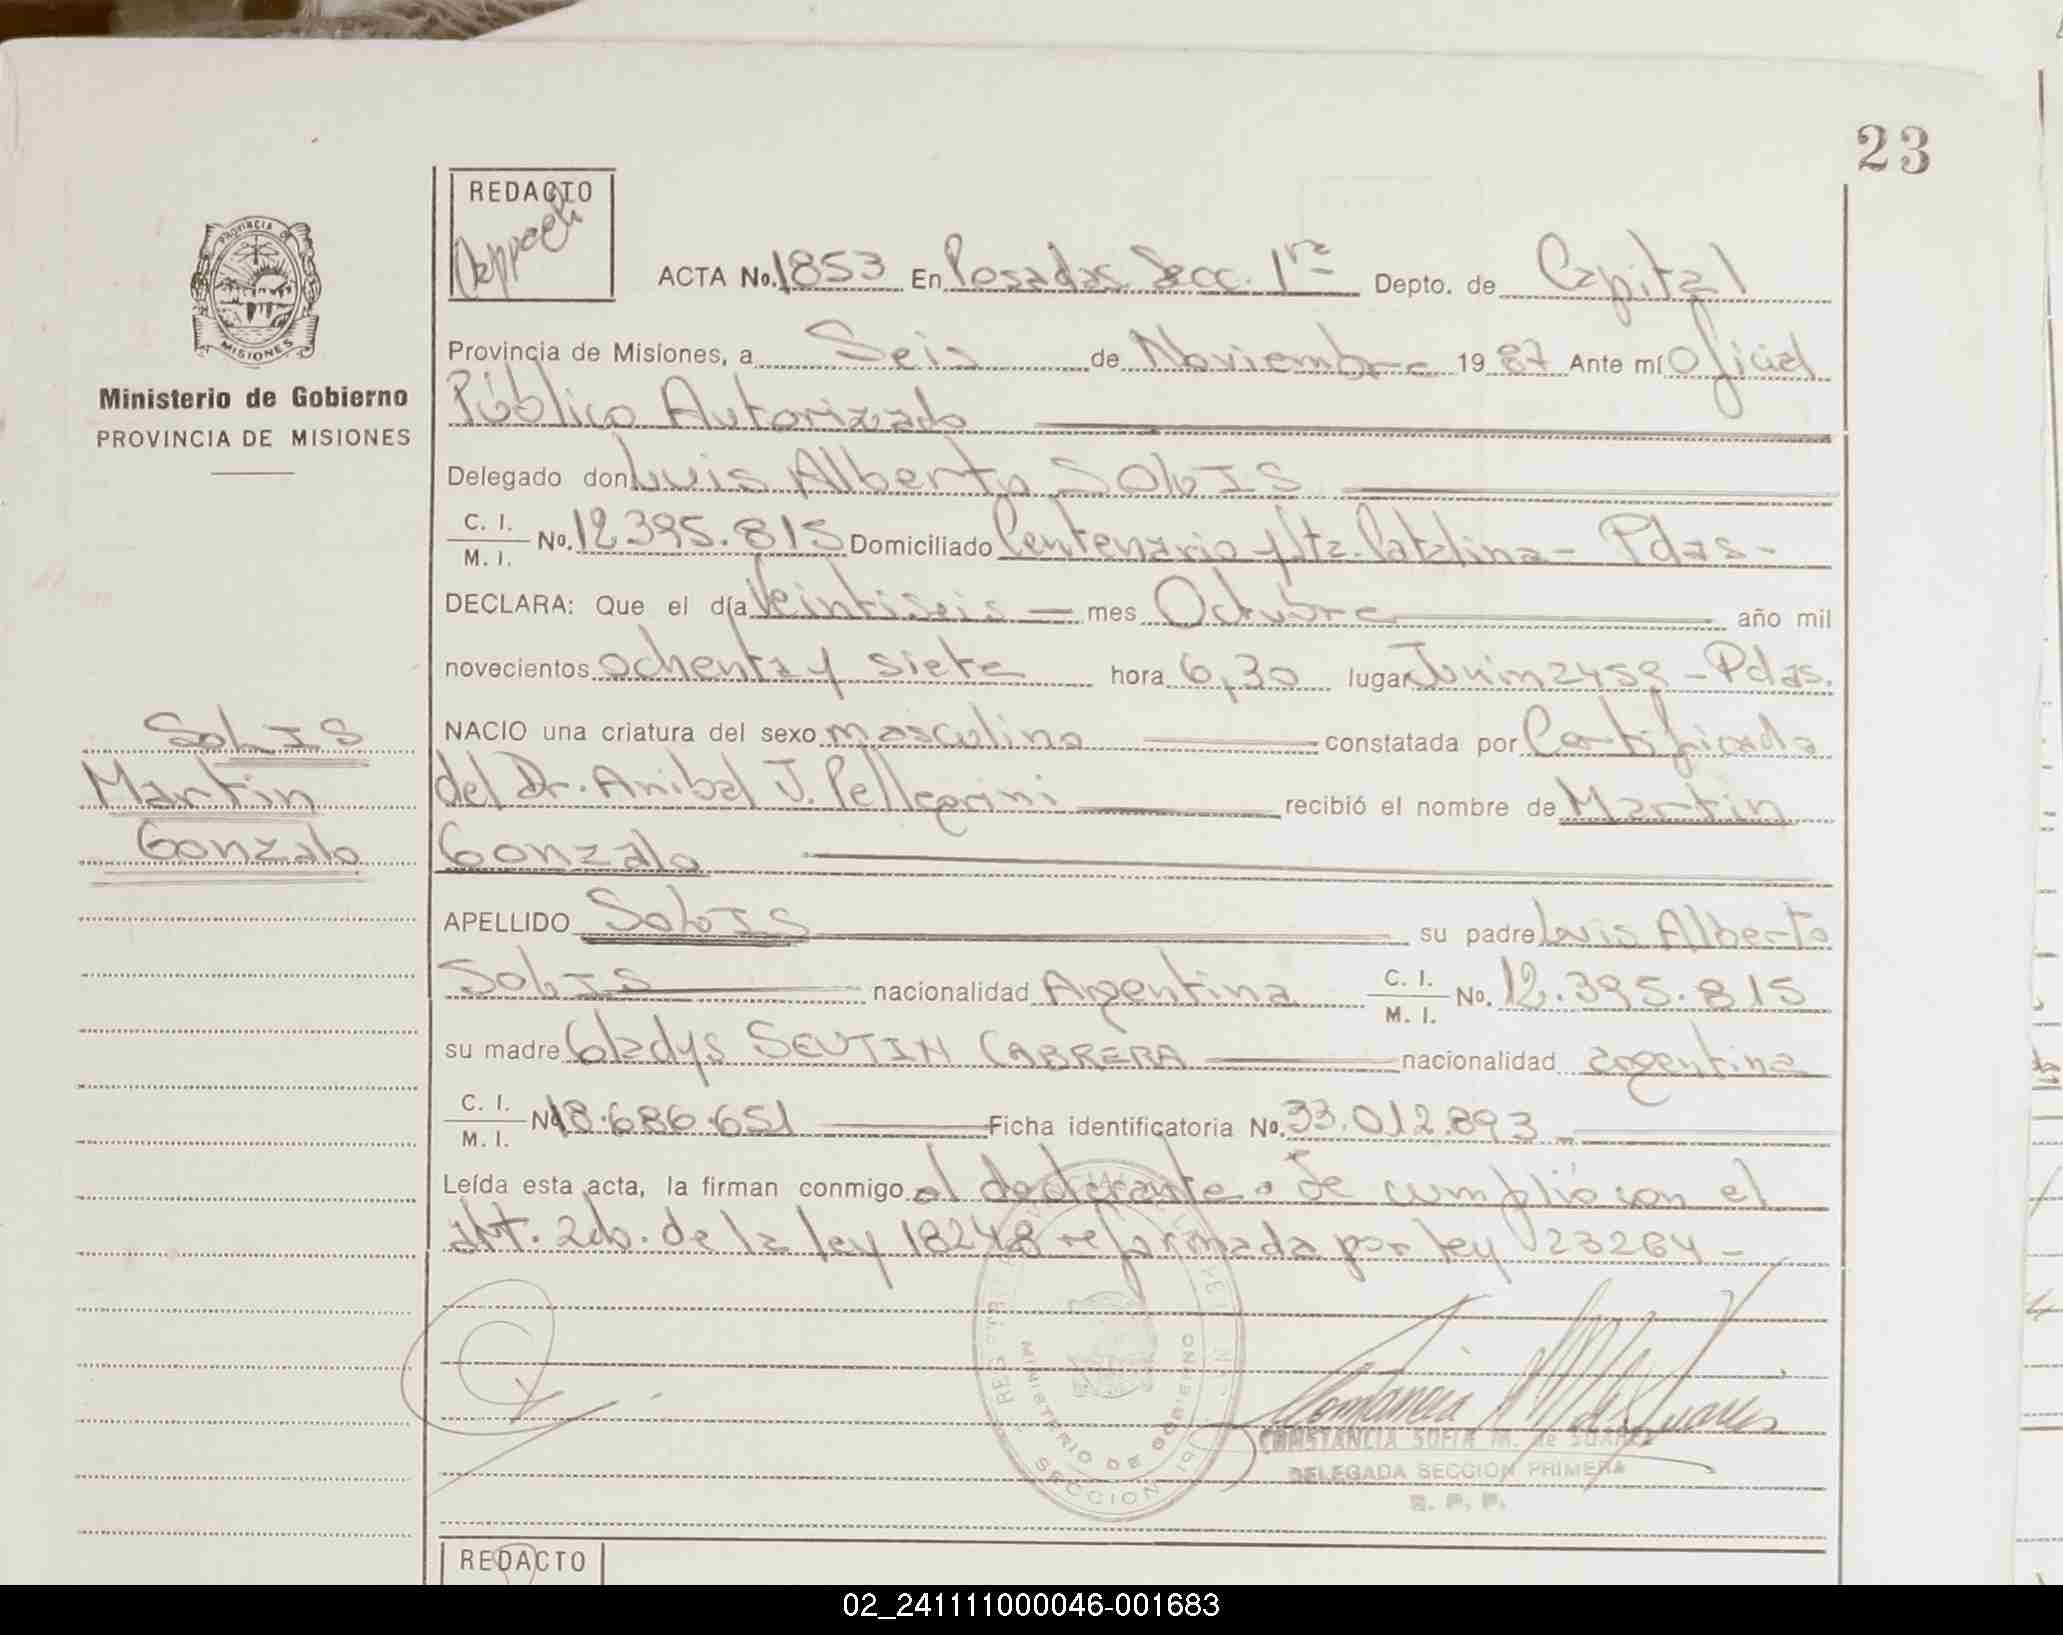 23
REDACTO
PROVINCIA DE
MISIONES
Ministerio de Gobierno
PROVINCIA DE MISIONES
ACTA No. 1853 En Posadas Secc. 1ra Depto. de Capital
Provincia de Misiones, a Seis de Noviembre 1987 Ante mí Oficial
Público Autorizado
Delegado don Luis Alberto SOLIS
C. I.
M. I. No. 12.395.815 Domiciliado Centenario y Sta. Catalina - Pdas -
DECLARA: Que el día Veintiseis mes Octubre año mil
novecientos ochenta y siete hora 6,30 lugar Junin 2458 - Pdas.
NACIO una criatura del sexo masculino constatada por Certificado
del Dr. Anibal J. Pellegrini recibió el nombre de Martin
Gonzalo
SOLIS
Martin
Gonzalo
APELLIDO SOLIS su padre Luis Alberto
SOLIS nacionalidad Argentina C. I.
M. I. No. 12.395.815
su madre Gladys SEUTIN CABRERA nacionalidad argentina
C. I.
M. I. No 18.686.651 Ficha identificatoria No. 33.012.893
Leída esta acta, la firman conmigo el declarante. Se cumplió con el
Art. 2do. de la ley 18248 reformada por ley 23264 -
MINISTERIO DE GOBIERNO
SECCION
CONSTANCIA SOFIA M. de SUAREZ
DELEGADA SECCION PRIMERA
R. P. P.
REDACTO
02_241111000046-001683